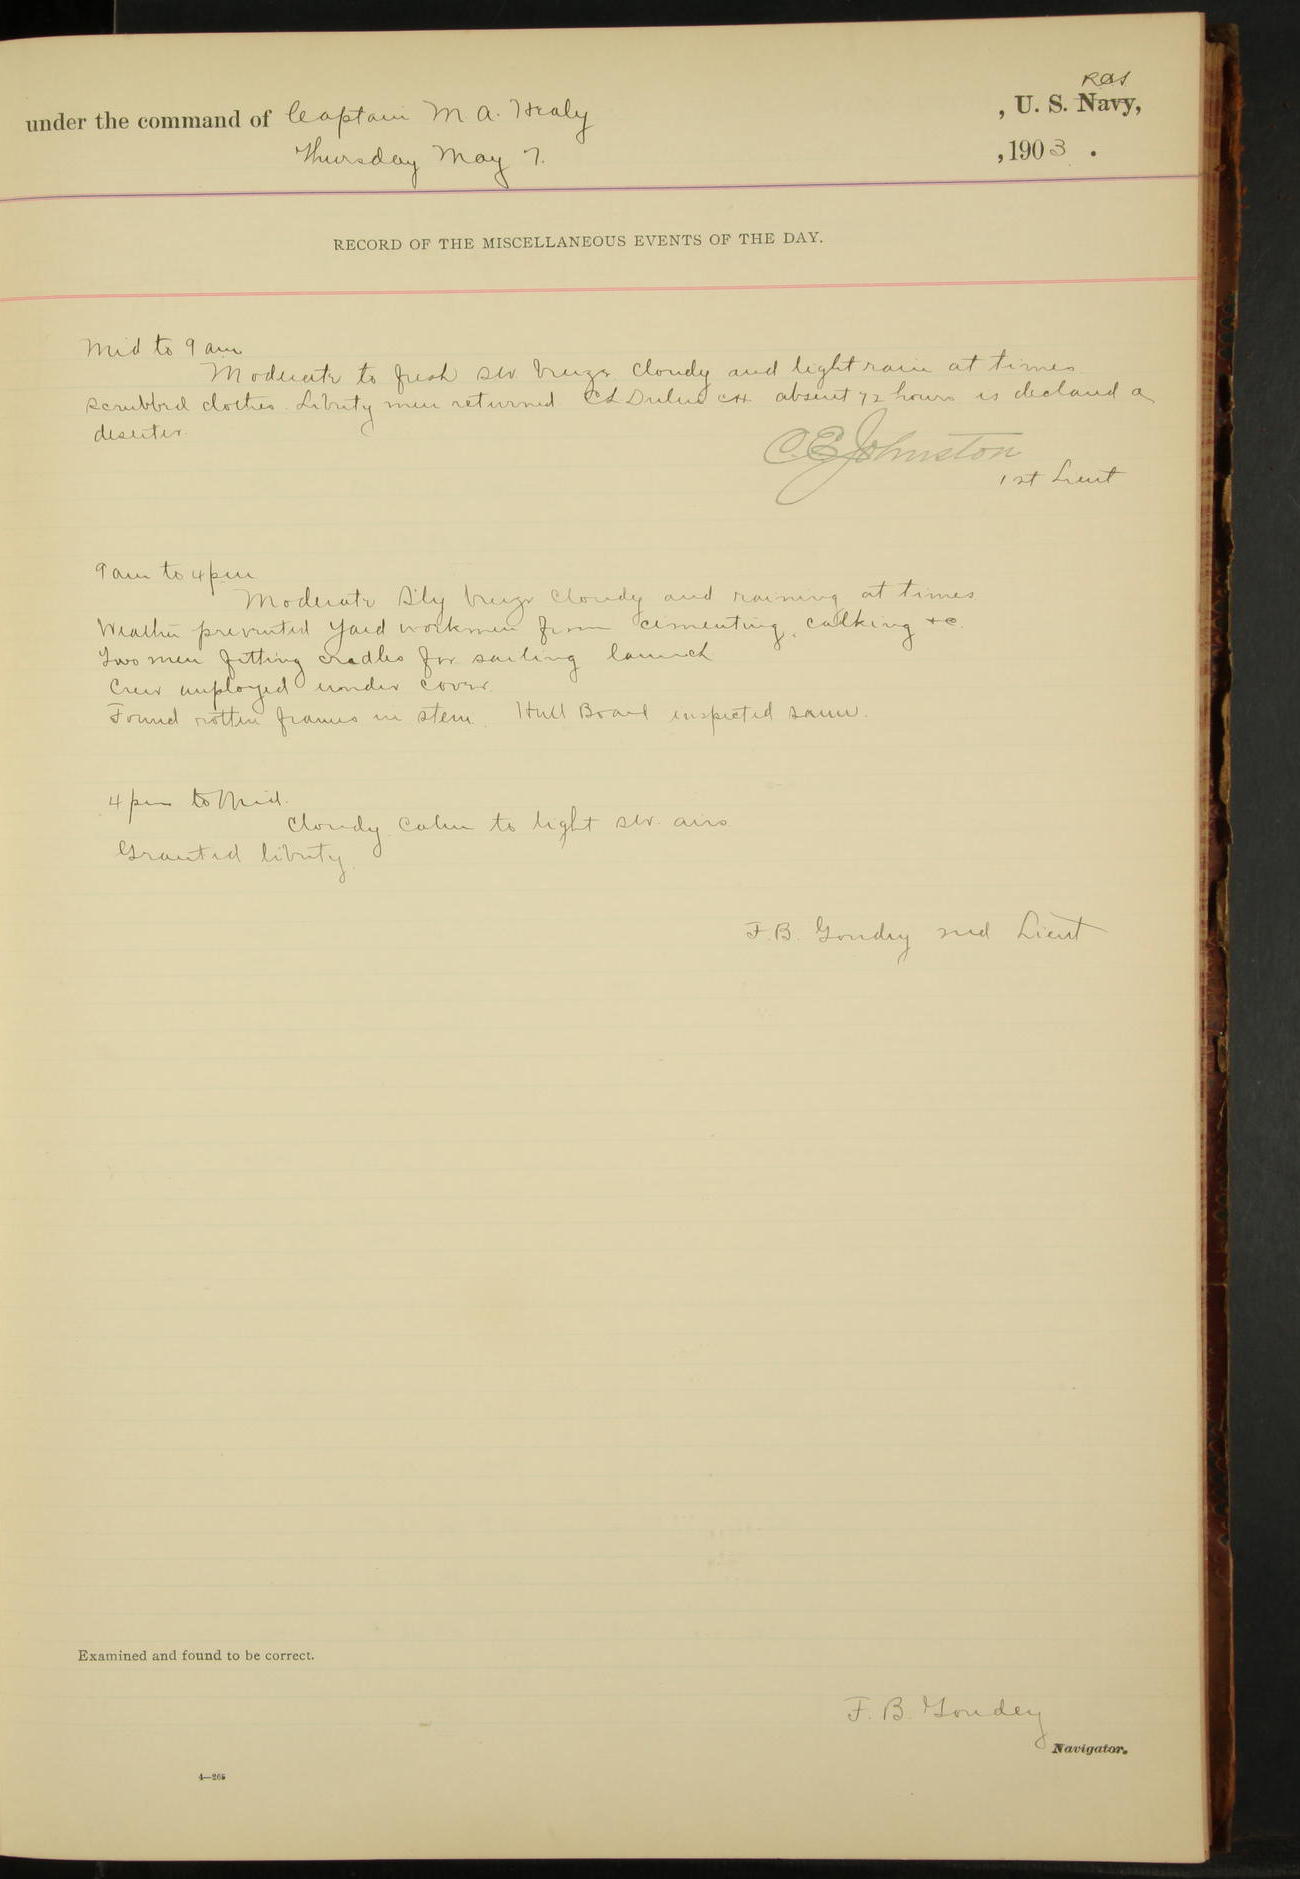 RCS
under the command of Captain M A. Healy , U. S. Navy,
Thursday May 7. , 1903 .
RECORD OF THE MISCELLANEOUS EVENTS OF THE DAY.
Mid to 9 am
Moderate to fresh SW breeze cloudy and light rain at times.
Scrubbed clothes. Liberty men returned absent 72 hours is declared a
deserter.
C. E. Johnston
1st Lieut
9 am to 4 pm
Moderate S'ly breeze cloudy and raining at times
Weather prevented Yard workmen from cementing, calking &c.
Two men fitting cradles for sailing launch
Crew employed under cover.
Found rotten frames in stem. Hull Board inspected same.
4 pm to Mid.
Cloudy. Calm to light SW. airs
Granted liberty.
F. B. Goudey Lieut
Examined and found to be correct.
F. B. Goudey
Navigator.
4—265